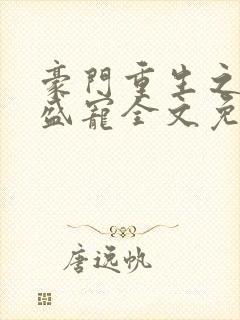 豪門重生之
盛寵全文免
唐遠帆